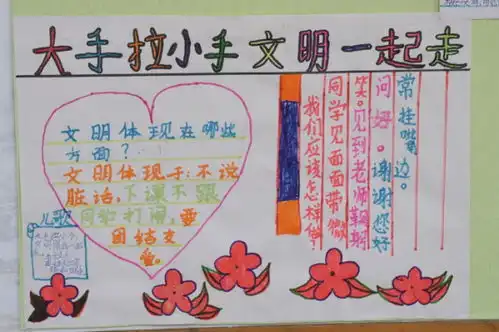 大手拉小手文明一起走
文明体现在哪些
方面?
文明体现于:不说
脏话,下课不跟
同学打闹,要
团结友
爱。
儿歌
我们应该怎样做?
同学见面面带微
笑。见到老师鞠躬
问好。谢谢您好
常挂嘴边。